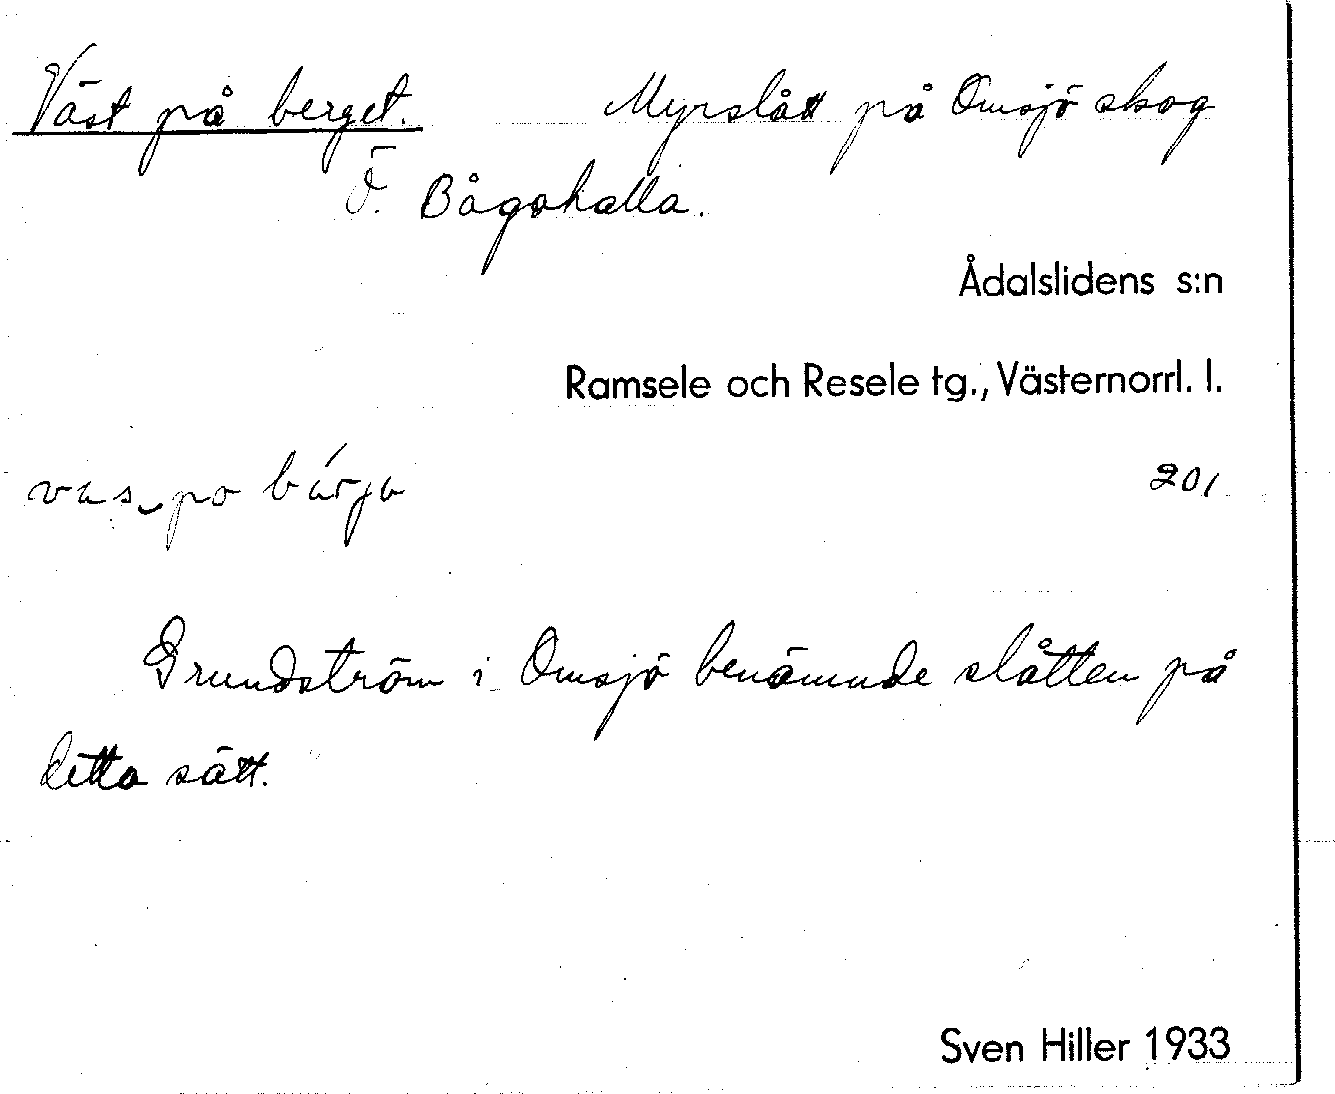 Väst på berget. Myrslått på Omsjö skog
Ö. Bågahalla.
Ådalslidens s:n
Ramsele och Resele tg., Västernorrl. l.
201
Grundström i Omsjö benämnde slåtten på
detta sätt.
Sven Hiller 1933